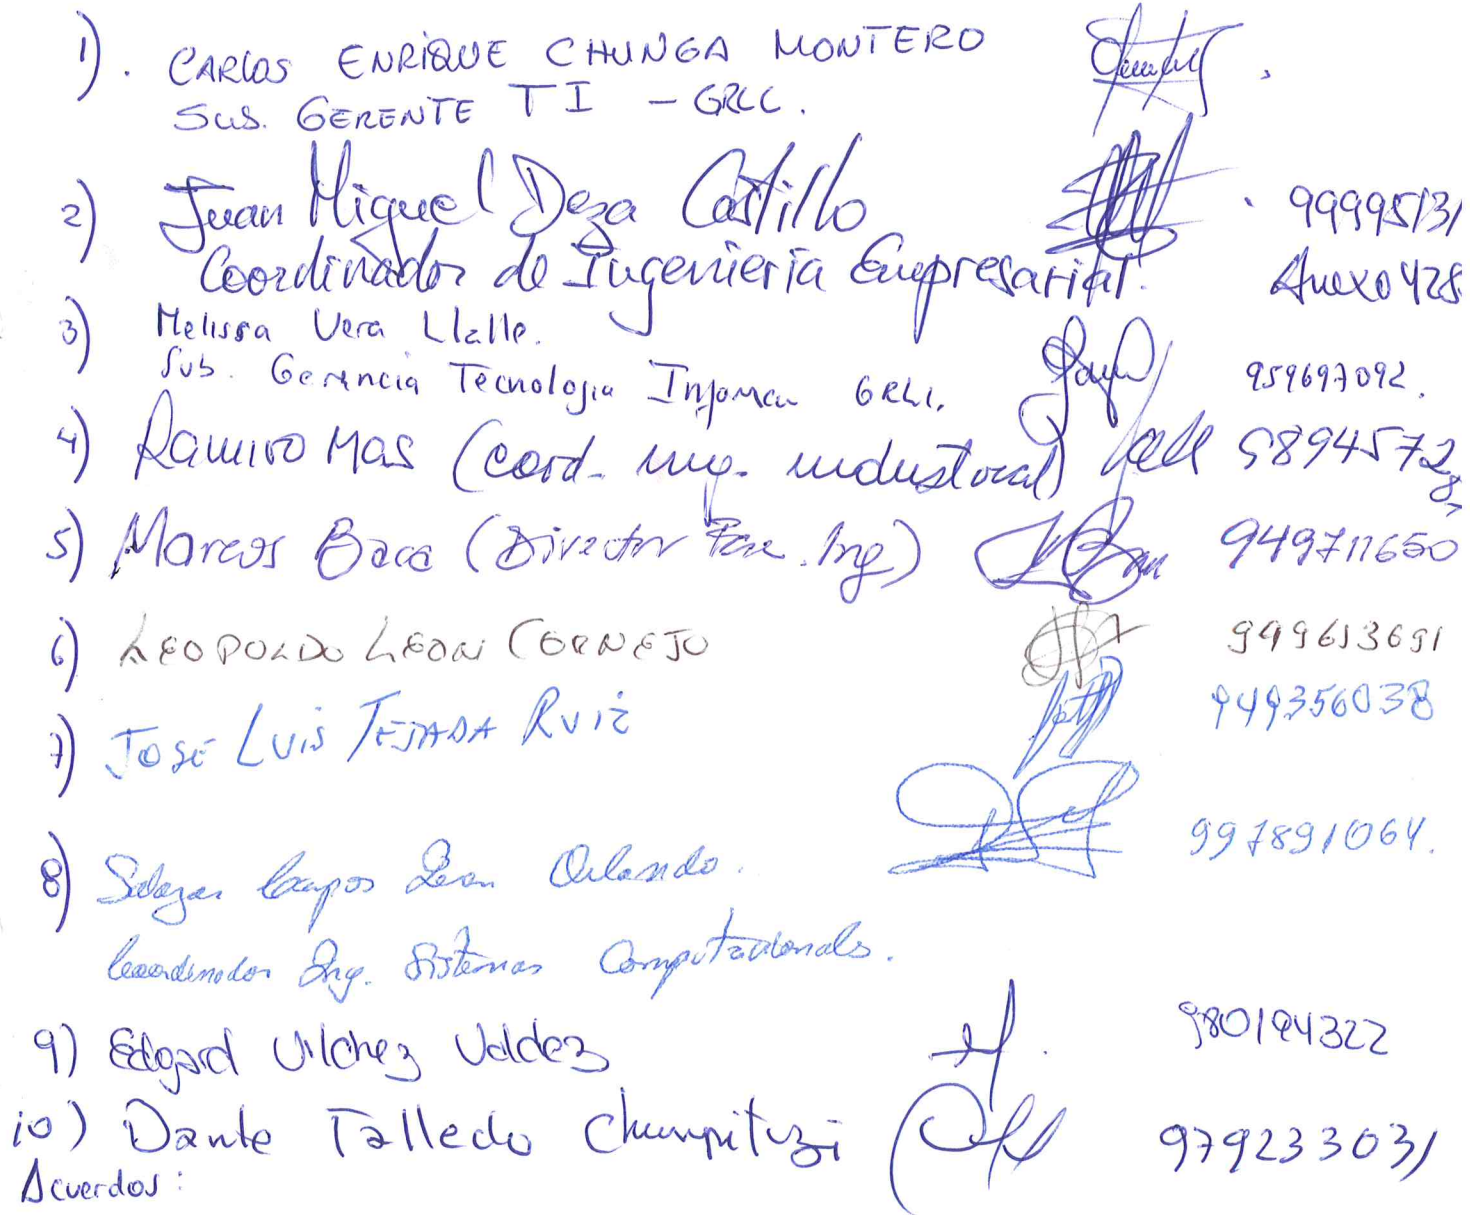 1). CARLOS ENRIQUE CHUNGA MONTERO
SUB. GERENTE TI - GRLL.
2) Juan Miguel Deza Castillo 99995131
Coordinador de Ingeniería Empresarial. Anexo 428
3) Melissa Vera Llalle.
Sub. Gerencia Tecnologia GRLL. 959697092.
4) RAMIRO MAS (coord. ing. industrial)
5) Marcos Baca (Director Ing) 949711650
6) LEOPOLDO LEON CORNEJO 949613691
7) JOSÉ LUIS TEJADA RUIZ 949356038
8) Salazar Campos Orlando. 997891064.
Coordinador Ing. Sistemas Computacionales.
9) Edgard Vilchez Valdez 980194322
10) Dante Talledo Chumpitazi 979233031
Acuerdos: